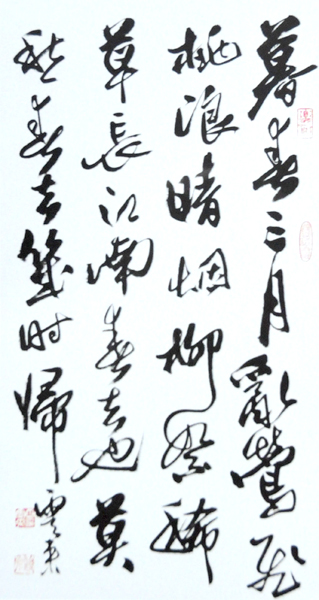 暮春三月亂鶯飛
桃浪晴烟柳絮稀
草長江南春去也莫
愁春去幾时歸